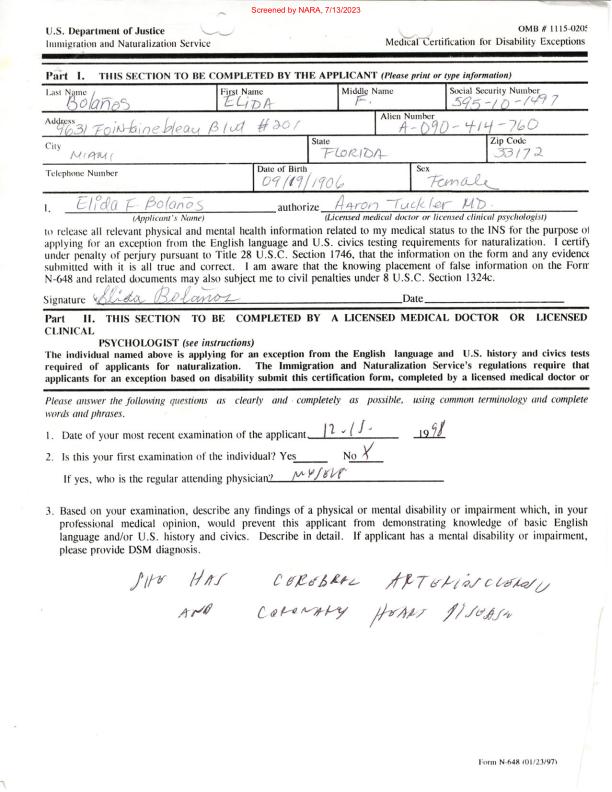 Screened by NARA, 7/13/2023
U.S. Department of Justice
OMB # 1115-0205
Immigration and Naturalization Service
Medical Certification for Disability Exceptions
Part I. THIS SECTION TO BE COMPLETED BY THE APPLICANT (Please print or type information)
Last Name First Name Middle Name Social Security Number
Bolaños ELIDA F. 595-10-1497
Address Alien Number
9631 Fointainebleau Blvd #201 A-090-414-760
City State Zip Code
MIAMI FLORIDA 33172
Telephone Number Date of Birth Sex
09/19/1906 Female
I, Elida F Bolaños authorize Aaron Tuckler MD.
(Applicant's Name) (Licensed medical doctor or licensed clinical psychologist)
to release all relevant physical and mental health information related to my medical status to the INS for the purpose of
applying for an exception from the English language and U.S. civics testing requirements for naturalization. I certify
under penalty of perjury pursuant to Title 28 U.S.C. Section 1746, that the information on the form and any evidence
submitted with it is all true and correct. I am aware that the knowing placement of false information on the Form
N-648 and related documents may also subject me to civil penalties under 8 U.S.C. Section 1324c.
Signature Elida Bolaños Date
Part II. THIS SECTION TO BE COMPLETED BY A LICENSED MEDICAL DOCTOR OR LICENSED
CLINICAL
PSYCHOLOGIST (see instructions)
The individual named above is applying for an exception from the English language and U.S. history and civics tests
required of applicants for naturalization. The Immigration and Naturalization Service's regulations require that
applicants for an exception based on disability submit this certification form, completed by a licensed medical doctor or
Please answer the following questions as clearly and completely as possible, using common terminology and complete
words and phrases.
1. Date of your most recent examination of the applicant 12-15- 1998
2. Is this your first examination of the individual? Yes No X
If yes, who is the regular attending physician? MYSELF
3. Based on your examination, describe any findings of a physical or mental disability or impairment which, in your
professional medical opinion, would prevent this applicant from demonstrating knowledge of basic English
language and/or U.S. history and civics. Describe in detail. If applicant has a mental disability or impairment,
please provide DSM diagnosis.
SHE HAS CEREBRAL
AND CORONARY HEART DISEASE
Form N-648 (01/23/97)